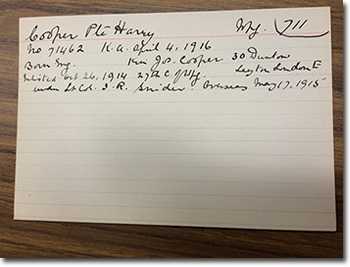 Cooper Pte Harry Wpg. 711
No 71462 K.a. april 4, 1916
Born Eng. Kin Jos. Cooper 30 Dunton
Enlisted oct 26, 1914 27th C of Wpg. Leyton London E
under Lt Col. I. R. Snider Overseas May 17, 1915